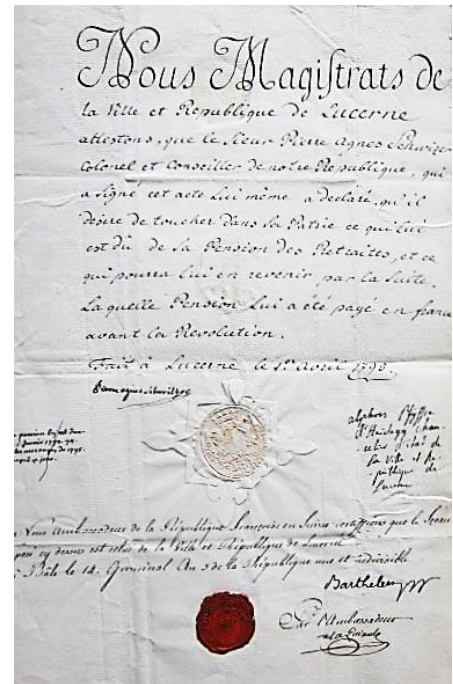 Nous Magistrats de
la Ville et Republique de Lucerne
attestons, que le Sieur Pierre Agnes Schwizer
Colonel et Conseiller de notre Republique, qui
a signé cet acte lui même a declaré, qu'il
desire de toucher dans sa Patrie ce qui lui
est dû de sa Pension des Retraites, et ce
qui pourra lui en revenir par la suite.
La quelle Pension lui a été payé en france
avant la Revolution.
Fait à Lucerne le 1er Avril 1795.
alphons Pfyffer
d'Heidegg Chan-
celier d'état de
la Ville et Re-
publique de
Lucerne
Nous Ambassadeur de la République française en Suisse certifions que le Sceau
cy dessus est celui de la Ville et République de Lucerne
Bâle le 14. Germinal An 3 de la République une et indivisible
Barthelemy
Par l'Ambassadeur